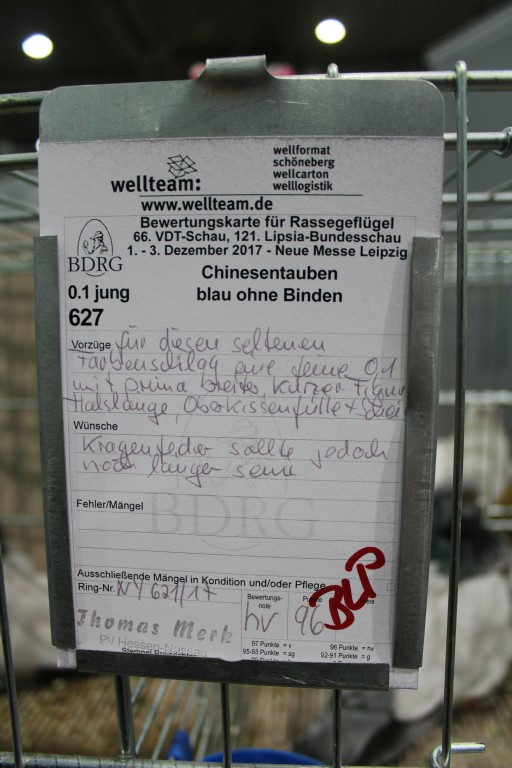 wellteam:
wellformat
schöneberg
wellcarton
welllogistik
www.wellteam.de
BDRG
Bewertungskarte für Rassegeflügel
66. VDT-Schau, 121. Lipsia-Bundesschau
1. - 3. Dezember 2017 - Neue Messe Leipzig
Chinesentauben
0.1 jung
blau ohne Binden
627
Vorzüge für diesen seltenen
Farbenschlag eine feine 0,1
mit prima breiter, kurzer Figur
Halslänge, Oberkissenfülle +
Wünsche
Kragenfeder sollte jedoch
noch länger sein
Fehler/Mängel
BDRG
Ausschließende Mängel in Kondition und/oder Pflege
Ring-Nr. NY 621/17
Bewertungs-
note
hv
96
BLP
Thomas Merk
PV Hessen-Nassau
97 Punkte = v
96 Punkte = hv
95-93 Punkte = sg
92-91 Punkte = g